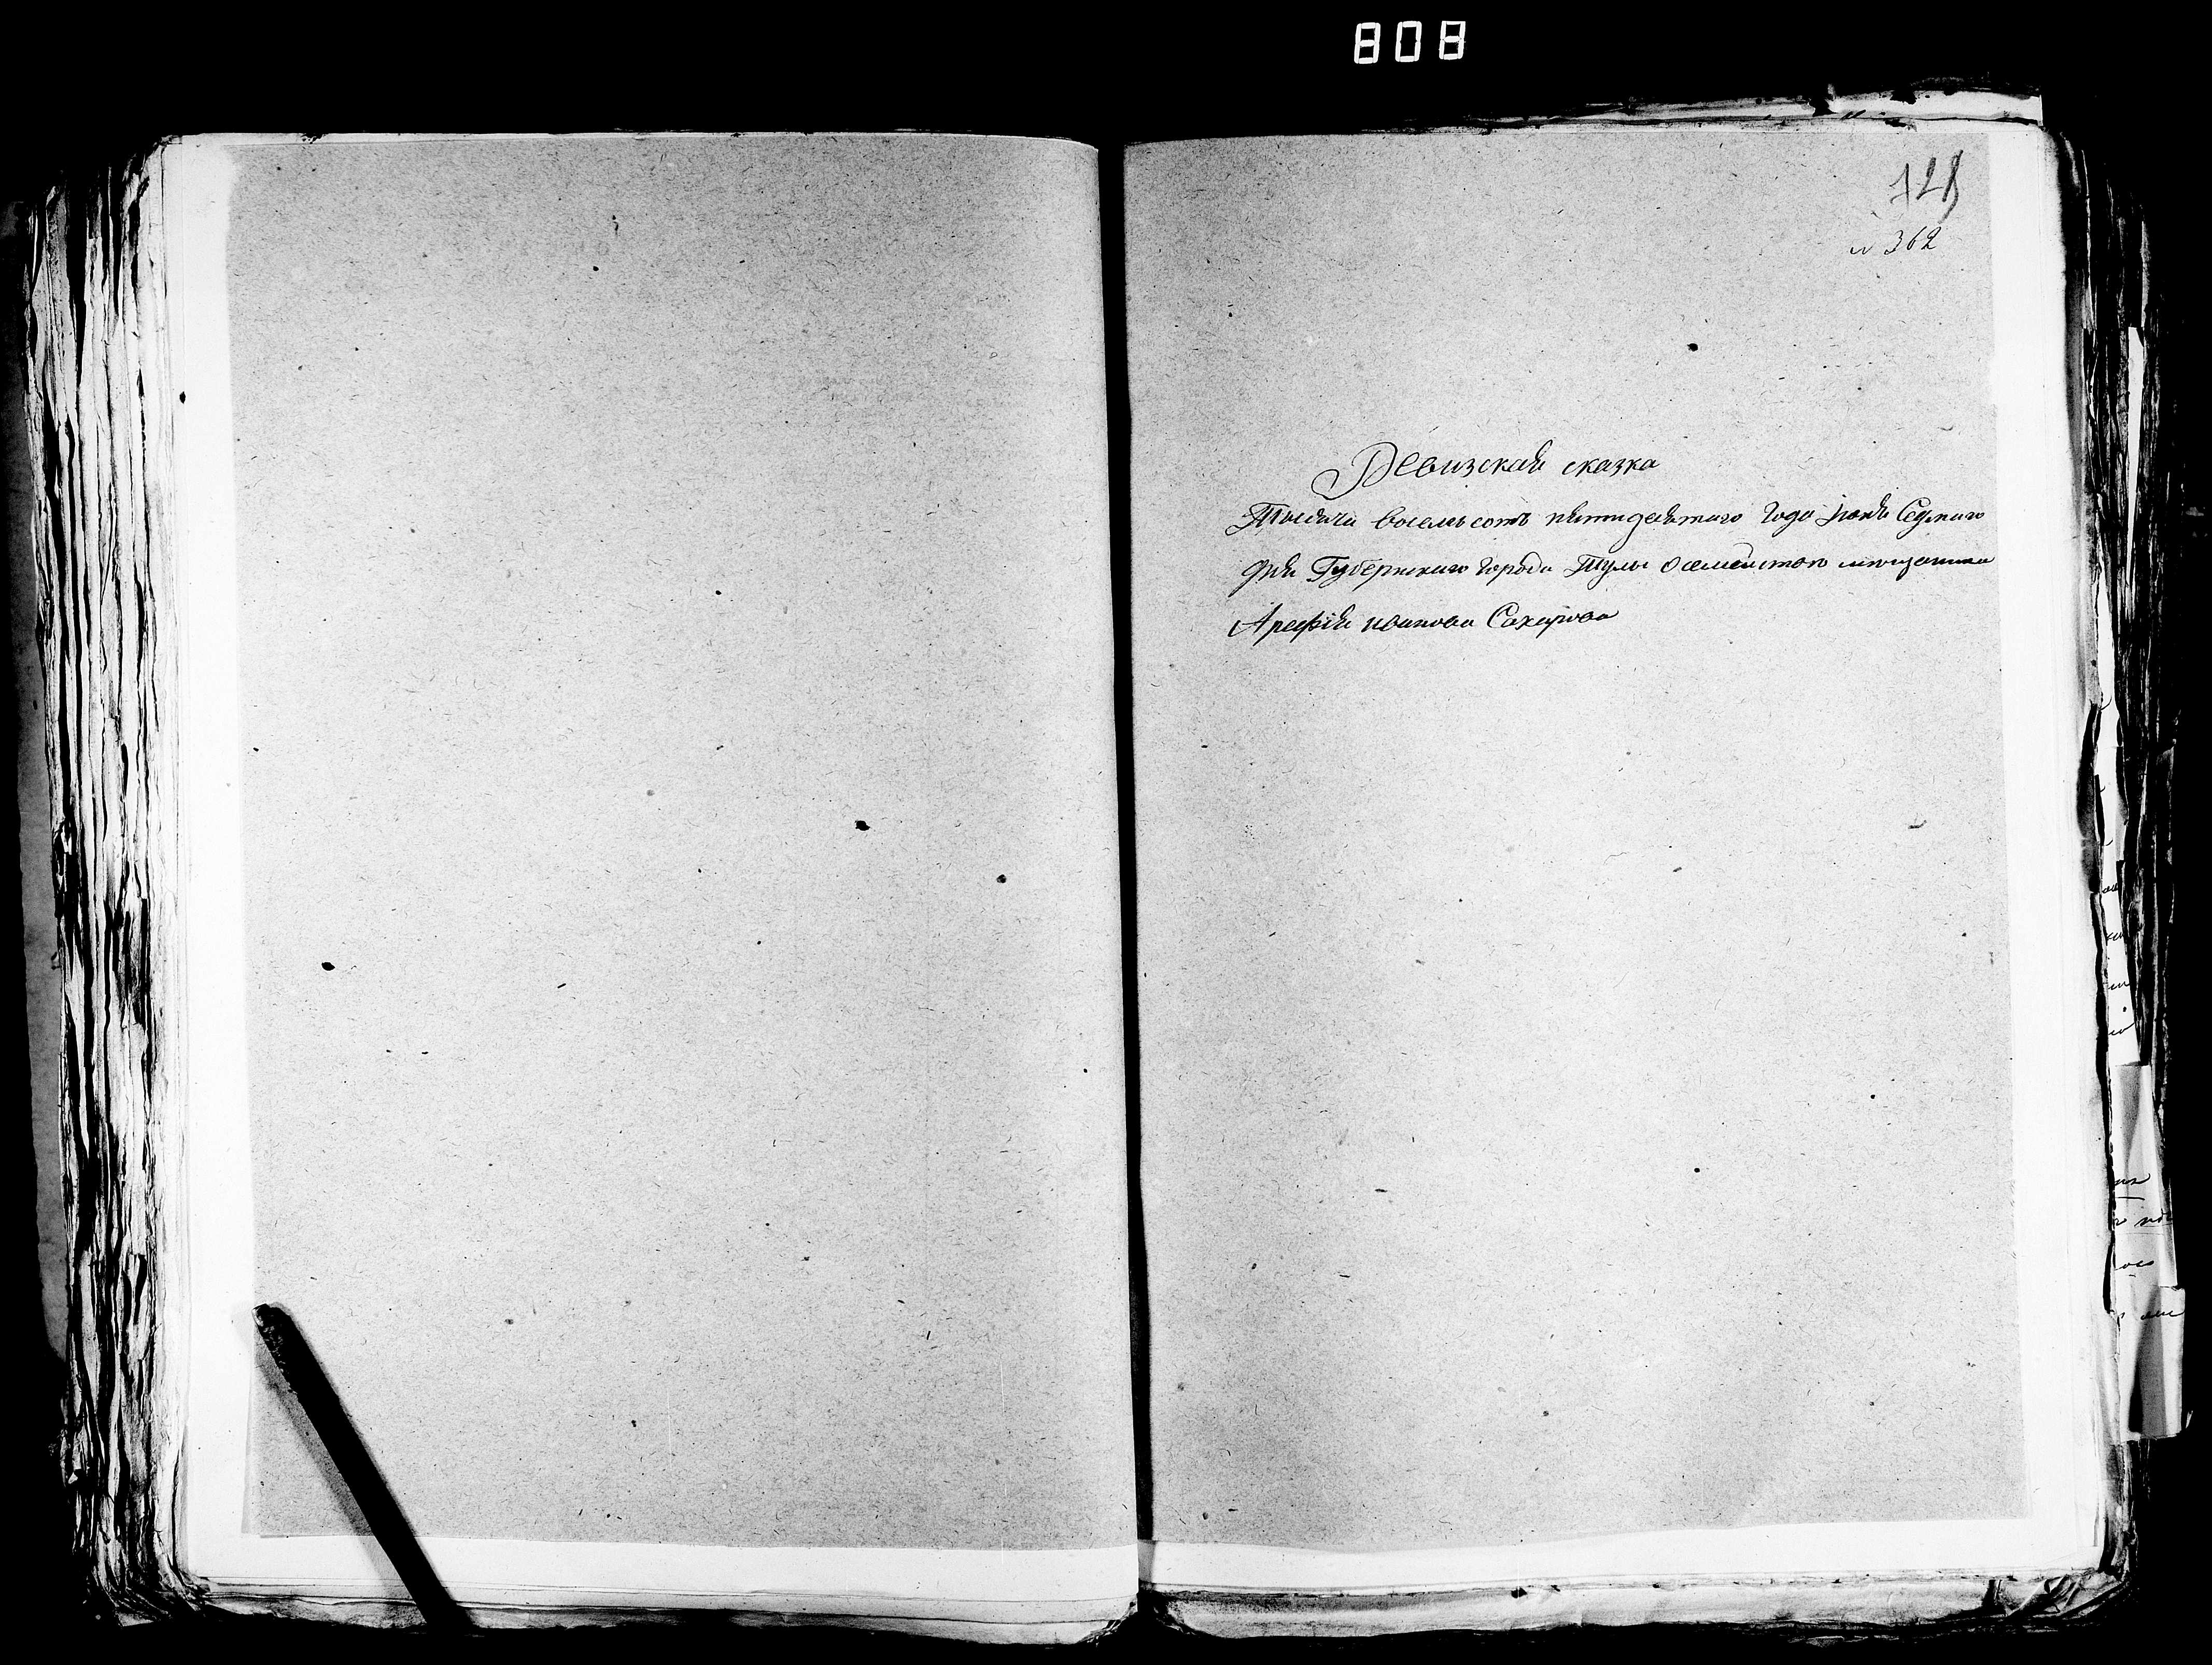 808
128
№ 362
Ревизская сказка
Тысяча восемьсотъ пятидесятаго года июня Седмаго
дня Губернскаго города Тулы о семействе мещанина
Арефия иванова Сахарова